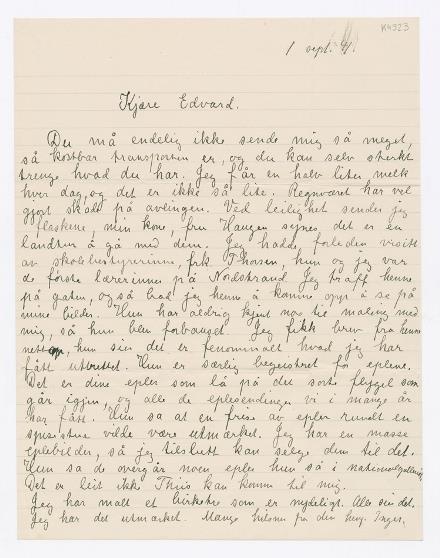 K4323
1 sept. 41.
Kjære Edvard.
Du må endelig ikke sende mig så meget,
så kostbar transporten er, og du kan selv sterkt
trenge hvad du har. Jeg får en halv liter melk
hver dag, og det er ikke så lite. Regnværet har vel
gjort skade på avlingen. Ved leilighet sender jeg
flaskene, min kone, fru Haugen synes det er en
landtur å gå med dem. Jeg hadde forleden visitt
av skolebestyrerinne, frk. Thorsen, hun og jeg var
de første lærerinner på Nordstrand. Jeg traff henne
på gaten, og så bad jeg henne å komme opp å se på
mine bilder. Hun har aldrig kjent noe til maling med
mig, så hun blev forbauset. Jeg fikk brev fra henne
nettop, hun sier det er fenomenalt hvad jeg har
fått utrettet. Hun er særlig begeistret for eplene.
Det er dine epler som lå på du sorte flygel som
går igjen, og alle de eplesendinger vi i mange år
har fått. Hun sa at en frise av epler rundt en
spisestue vilde være utmerket. Jeg har en masse
eplebilder, så jeg tilslutt kan selge dem til det.
Hun sa de overgår noen epler hun så i nationalgalleriet.
Det er leit ikke Thiis kan komme til mig.
Jeg har malt et birketre som er nydeligt. Alle sier det.
Jeg har det utmerket. Mange hilsner fra din heng. Inger.